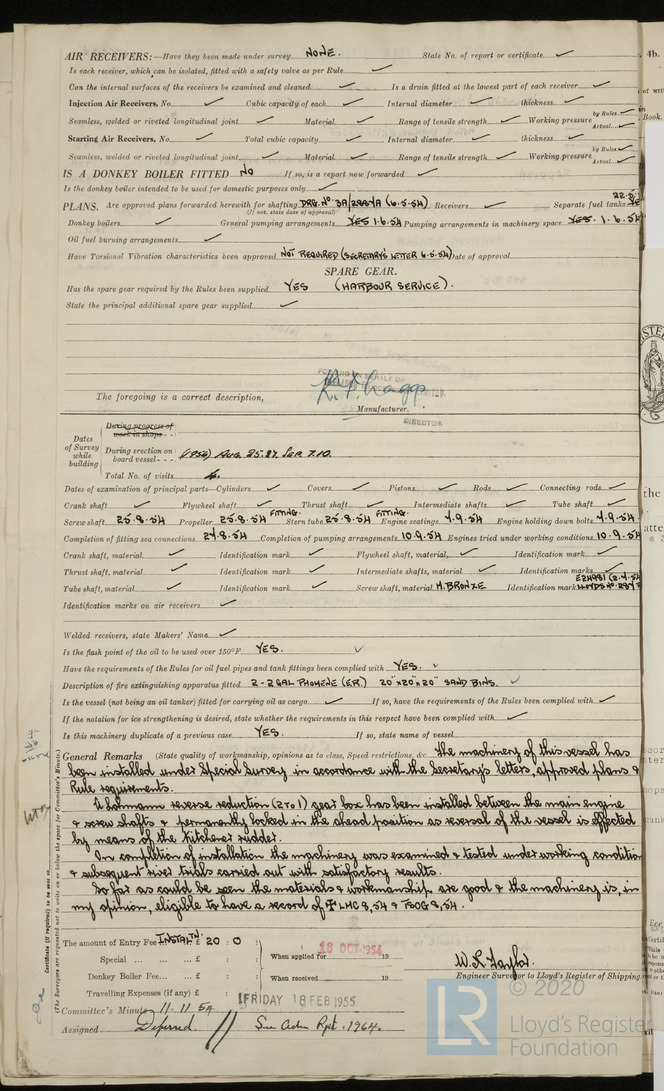 AIR RECEIVERS:—Have they been made under survey NONE. State No. of report or certificate
Is each receiver, which can be isolated, fitted with a safety valve as per Rule
Can the internal surfaces of the receivers be examined and cleaned Is a drain fitted at the lowest part of each receiver
Injection Air Receivers, No. Cubic capacity of each Internal diameter thickness
Seamless, welded or riveted longitudinal joint Material Range of tensile strength Working pressure by Rules Actual
Starting Air Receivers, No. Total cubic capacity Internal diameter thickness
Seamless, welded or riveted longitudinal joint Material Range of tensile strength Working pressure by Rules Actual
IS A DONKEY BOILER FITTED NO If so, is a report now forwarded
Is the donkey boiler intended to be used for domestic purposes only
PLANS. Are approved plans forwarded herewith for shafting DRG. No. 3A/2887A (6.5.54) Receivers Separate fuel tanks
(If not, state date of approval)
Donkey boilers General pumping arrangements YES 1.6.54 Pumping arrangements in machinery space YES. 1.6.54
Oil fuel burning arrangements
Have Torsional Vibration characteristics been approved NOT REQUIRED (SECRETARY'S LETTER 6.5.54) Date of approval
SPARE GEAR.
Has the spare gear required by the Rules been supplied YES (HARBOUR SERVICE).
State the principal additional spare gear supplied
The foregoing is a correct description,
Manufacturer.
DIRECTOR.
Dates of Survey while building
During progress of work in shops - -
During erection on board vessel - - - (1954) AUG. 25. 27. SEP. 7. 10.
Total No. of visits 4.
Dates of examination of principal parts—Cylinders Covers Pistons Rods Connecting rods
Crank shaft Flywheel shaft Thrust shaft Intermediate shafts Tube shaft
Screw shaft 25.8.54 Propeller 25.8.54 FITTING. Stern tube 25.8.54 FITTING. Engine seatings 7.9.54 Engine holding down bolts 7.9.54
Completion of fitting sea connections 27.8.54 Completion of pumping arrangements 10.9.54 Engines tried under working conditions 10.9.54
Crank shaft, material Identification mark Flywheel shaft, material, Identification mark
Thrust shaft, material Identification mark Intermediate shafts, material Identification marks
Tube shaft, material Identification mark Screw shaft, material M. BRONZE Identification mark
Identification marks on air receivers
Welded receivers, state Makers' Name
Is the flash point of the oil to be used over 150°F. YES.
Have the requirements of the Rules for oil fuel pipes and tank fittings been complied with YES.
Description of fire extinguishing apparatus fitted 2 - 2 GAL PHOMENE (E.R.) 20"x20"x20" SAND BINS.
Is the vessel (not being an oil tanker) fitted for carrying oil as cargo If so, have the requirements of the Rules been complied with
If the notation for ice strengthening is desired, state whether the requirements in this respect have been complied with
Is this machinery duplicate of a previous case YES. If so, state name of vessel
General Remarks (State quality of workmanship, opinions as to class, Speed restrictions, &c. The machinery of this vessel has
been installed under Special Survey in accordance with the Secretary's letters, approved plans &
Rule requirements.
A Lohmann reverse reduction (2 to 1) gear box has been installed between the main engine
& screw shafts & permanently locked in the ahead position as reversal of the vessel is effected
by means of the Kitchener rudder.
On completion of installation the machinery was examined & tested under working condition
& subsequent river trials carried out with satisfactory results.
So far as could be seen the materials & workmanship are good & the machinery is, in
my opinion, eligible to have a record of ✠ LMC 9,54 & TSOG 8,54.
The amount of Entry Fee INSTALN. £ 20 : 0
Special ... ... ... £ : :
Donkey Boiler Fee... ... £ : :
Travelling Expenses (if any) £ : :
When applied for 18 OCT 1954 19
When received 19
W. L. Taylor.
Engineer Surveyor to Lloyd's Register of Shipping
Committee's Minute 11.11.54 FRIDAY 18 FEB 1955
Assigned Deferred // See Aden Rpt. 1964.
© 2020
LR
Lloyd's Register
Foundation